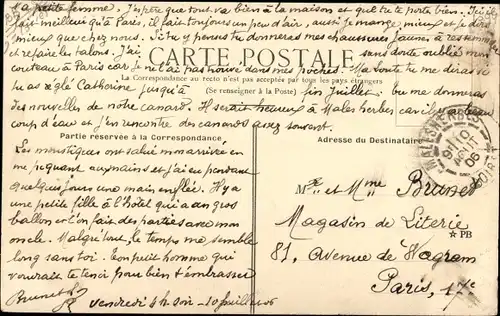 Ma petite femme. J'espère que tout va bien à la maison et que tu te portes bien. Ici il
fait meilleur qu'à Paris, il fait toujours un peu d'air, aussi je mange mieux et je dors
mieux que chez nous. Si tu y penses tu donneras mes chaussures jaunes à ressemeler
et refaire les talons. J'ai sans doute oublié mon
CARTE POSTALE
couteau à Paris car je ne l'ai pas trouvé dans mes poches. tu me diras si
La Correspondance au recto n'est pas acceptée par tous les pays étrangers
(Se renseigner à la Poste)
tu as réglé Catherine jusqu'à fin Juillet. tu me donneras
des nouvelles de notre canard. Il serait heureux à Malesherbes car il y a
coup d'eau et j'en rencontre des canards assez souvent.
Partie réservée à la Correspondance
Adresse du Destinataire
Les moustiques ont salué mon arrivée en
me piquant aux mains et j'ai eu pendant
quelques jours une main enflée. Il y a
une petite fille à l'hôtel qui a un gros
ballon et l'on fait des parties avec mon
oncle. Malgré tout le temps me semble
long sans toi. Ton petit homme qui
voudrait te tenir pour bien t'embrasser
Brunet
Vendredi 4h soir - 10 Juillet 06
MALESHERBES
06
Mr et Mme Brunet
Magasin de Literie
PB
81, Avenue de Wagram
Paris, 17e